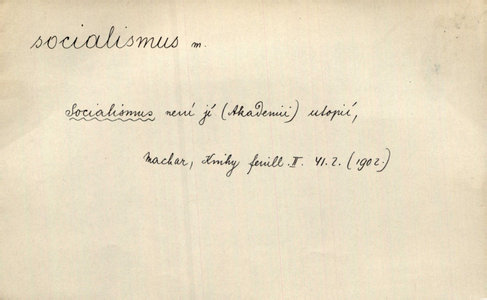 socialismus m.
Socialismus není jí (Akademii) utopií,
Machar, Knihy feuill. II. 41.2. (1902.)